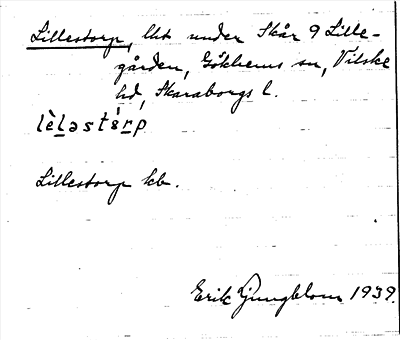 Lillestorp, lht under Skår 9 Lille-
gården, Gökhems sn, Vilske
hd, Skaraborgs l.
lè̱ləstó̱rp
Lillestorp kb.
Erik Ljungblom 1939.